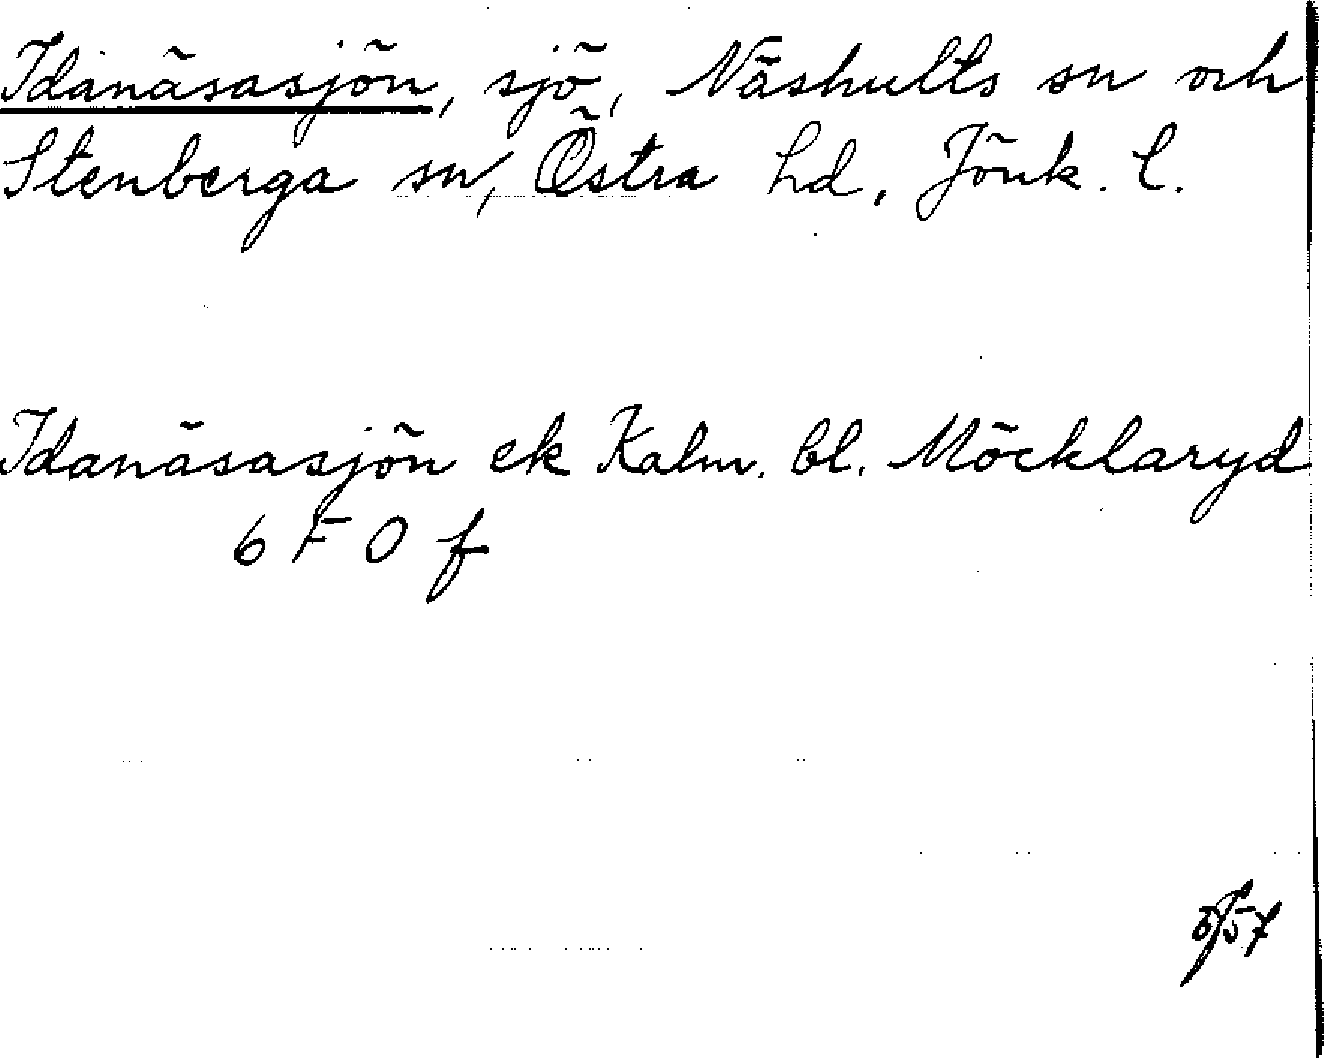 Idanäsasjön, sjö, Näshults sn och
Stenberga sn, Östra hd, Jönk. l.
Idanäsasjön ek Kalm. bl. Möcklaryd
6 F 0 f